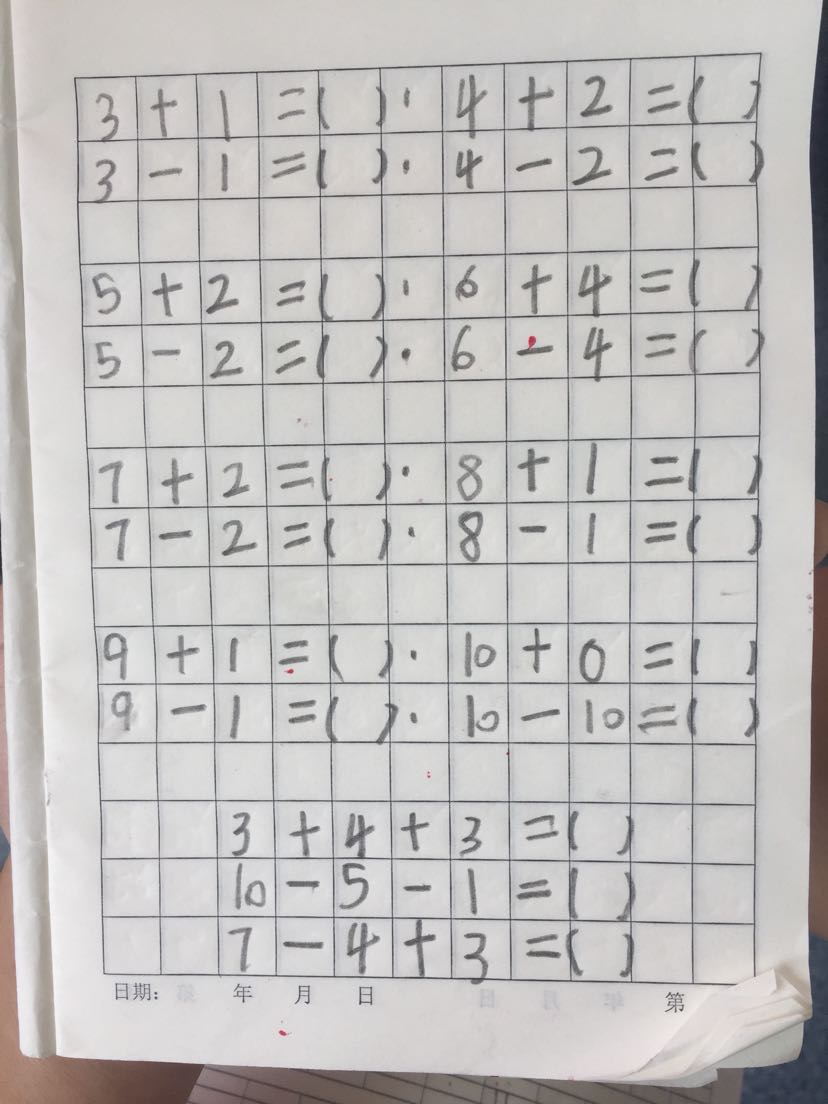 3 + 1 = ( ) · 4 + 2 = ( )
3 - 1 = ( ) · 4 - 2 = ( )
5 + 2 = ( ) · 6 + 4 = ( )
5 - 2 = ( ) · 6 - 4 = ( )
7 + 2 = ( ) · 8 + 1 = ( )
7 - 2 = ( ) · 8 - 1 = ( )
9 + 1 = ( ) · 10 + 0 = ( )
9 - 1 = ( ) · 10 - 10 = ( )
3 + 4 + 3 = ( )
10 - 5 - 1 = ( )
7 - 4 + 3 = ( )
日期: 年 月 日 第